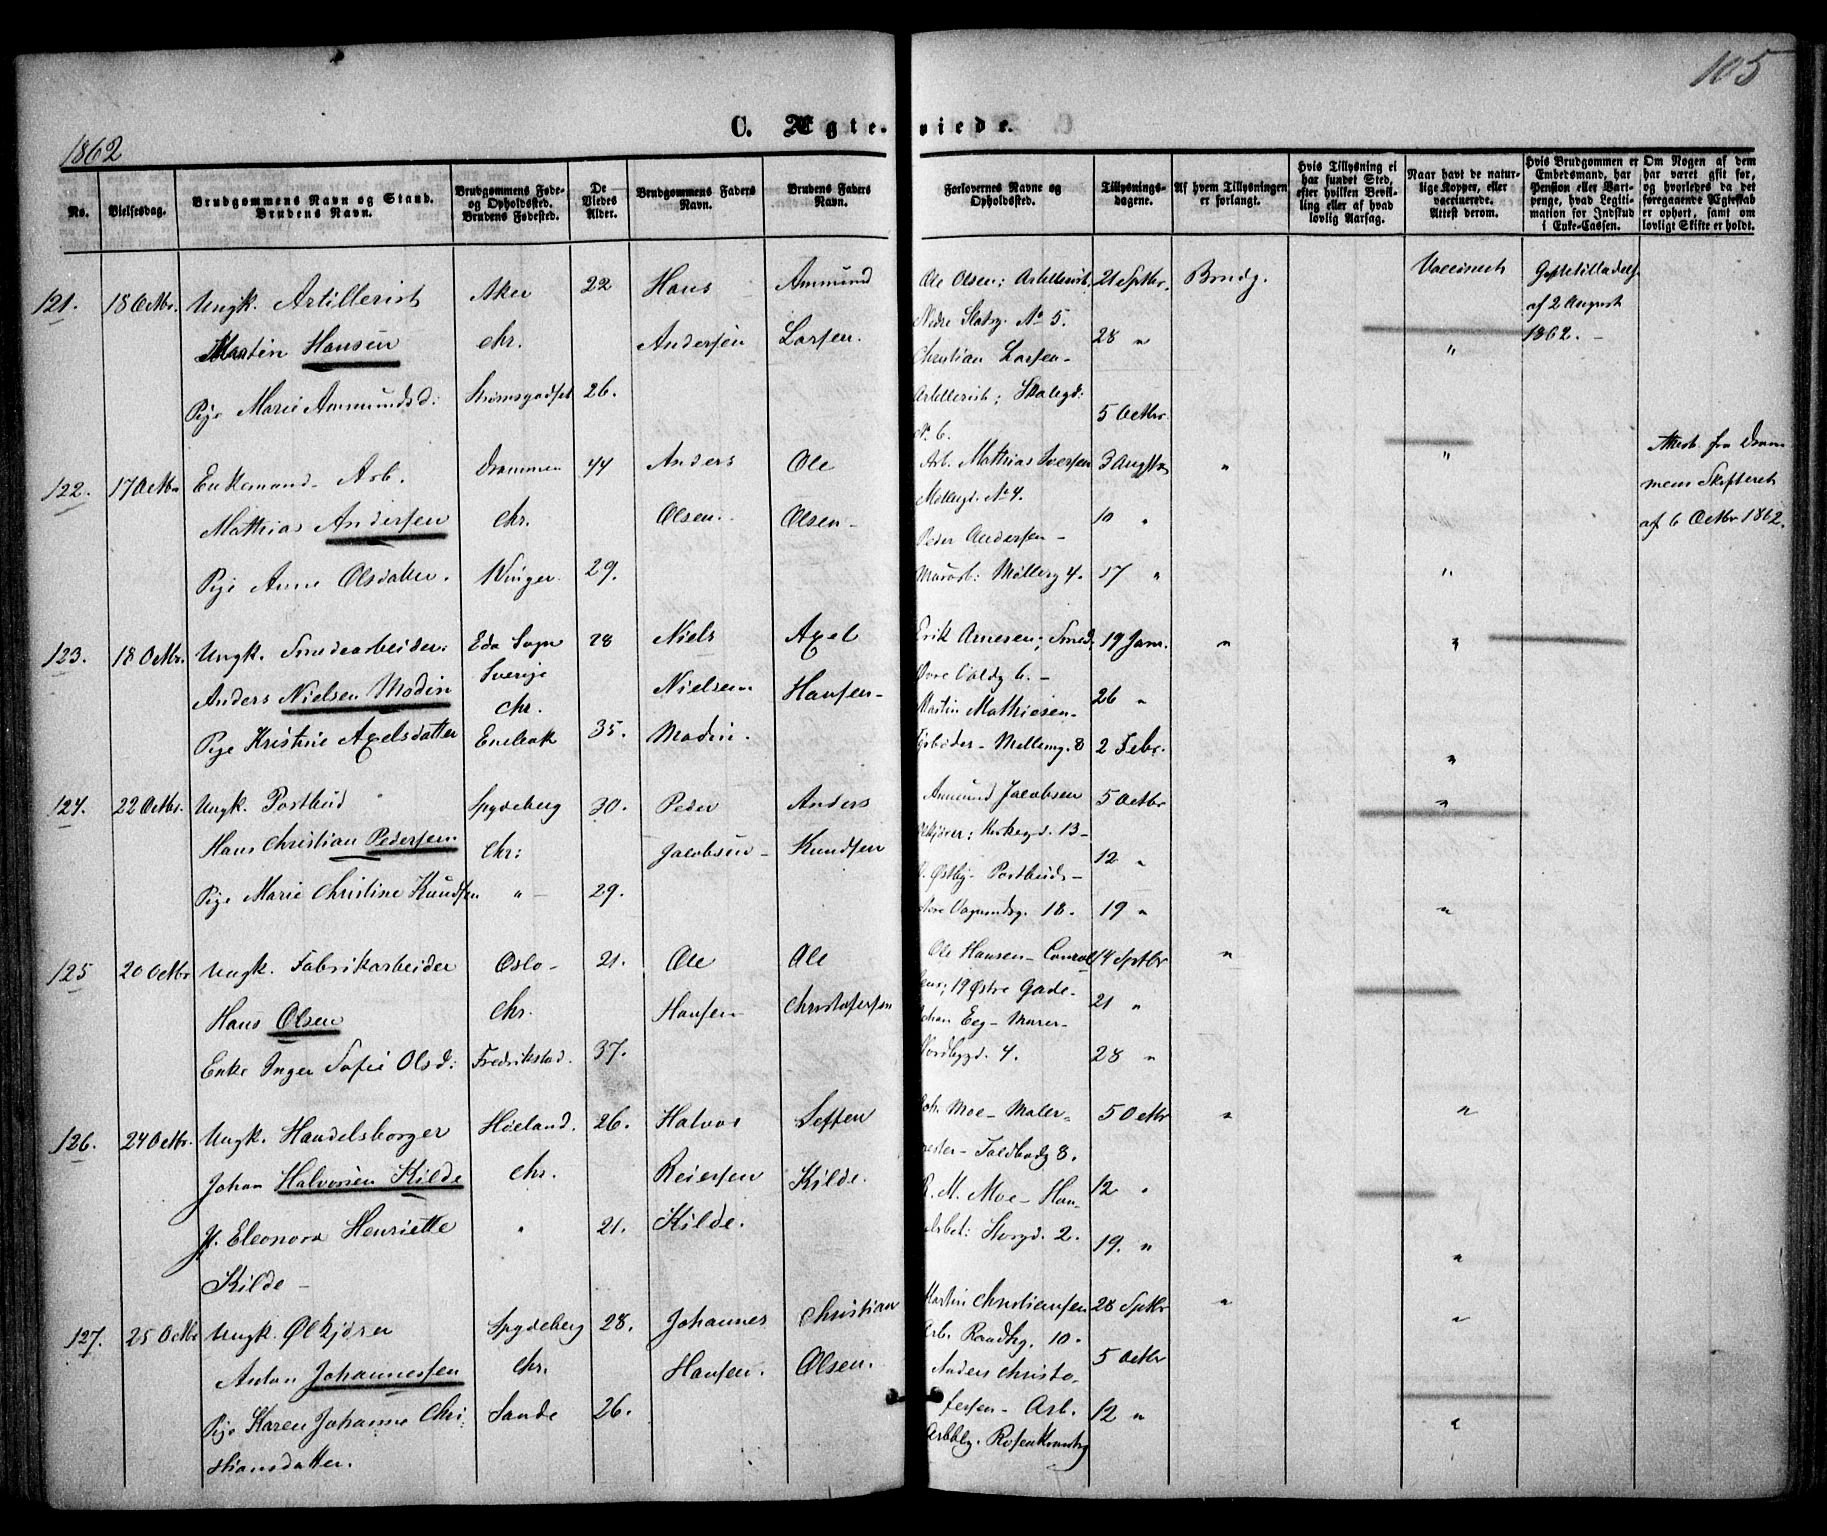 105
1862
C. Ægte- viede.
No.
Vielsesdag.
Brudgommens Navn og Stand.
Brudens Navn.
Brudgommens Føde-
og Opholdssted.
Brudens Fødested.
De
Viedes
Alder.
Brudgommens Faders
Navn.
Brudens Faders
Navn.
Forlovernes Navne og
Opholdssted.
Tillysnings-
dagene.
Af hvem Tillysningen
er forlangt.
Hvis Tillysning ei
har fundet Sted,
efter hvilken Bevil-
ling eller af hvad
lovlig Aarsag.
Naar havt de natur-
lige Kopper, eller
vaccinerede.
Attest derom.
Hvis Brudgommen er
Embedsmand, har
Pension eller Vart-
penge, hvad Legiti-
mation for Indskud
i Enke-Cassen.
Om Nogen af dem
har været gift før,
og hvorledes da det
foregaaende Ægteskab
er ophørt, samt om
lovligt Skifte er holdt.
121. 18 Octbr. Ungk. Artillerist Aker 22 Hans Ammund Ole Olsen: Artillerist, 21 Sptbr. Brudg. Vaccineret Giftetilladelse
af 2 August
Martin Hansen Chr. Andersen Larsen. Nedre Slotsg. No 5. 28 " " 1862. -
Christian Larsen-
Pige Marie Ammundsd: Strømsgodset 26. Artillerist; 5 Octbr.
No 6.
122. 17 Octbr Enkemand Arb. Drammen 44 Anders Ole Arb. Mathias Iversen 3 August " " Attest fra Dram
Møllergd. No 4. mens Skifteret
Mathias Andersen Chr. Olsen. Olsen- 10 " " af 6 Octbr 1862.
Peder Andersen -
Pige Anne Olsdatter. Vinger 29. Møllerg 4. 17 " "
123. 18 Octbr. Ungk. Smedearbeider: Eda Sogn 28 Niels Axel Erik Arnesen; Smed. 19 Janr. " "
Sverige Øvre Voldg 6. -
Anders Nielsen Modin Chr. Nielsen Hansen- Martin Mathiesen- 26 "
Pige Kristine Axelsdatter Enebak 35. Modin. 8 2 Febr. "
124. 22 Octbr. Ungk. Postbud Spydeberg 30. Peder Anders Ammund Jacobsen 5 Octbr "
13-
Hans Christian Pedersen Chr: Jacobsen- Knudsen 12 "
Østby- Postbud-
Pige Marie Christine Knudsen " - 29. 18. 19 " "
125 20 Octbr Ungk. Fabrikarbeider Oslo- 21. Ole Ole Ole Hansen- 14 Sptbr "
19 Østre Gade-
Hans Olsen Chr. Hansen Christofersen 21 "
Johan Eeg- Murer-
Enke Inger Sofie Olsd: Fredrikstad. 37. 4. 28 "
126. 24 Octbr. Ungk. Handelsborger Høland. 26. Halvor Steffen Joh. Moe- Maler- 5 Octbr " "
mester- 8.
Johan Halvorsen Kilde Chr. Reiersen Kilde. R. M. Moe- Han 12 "
Jf. Eleonora Henriette " 21. Kilde. Storgd. 2. 19. " "
Kilde -
127. 25 Octbr Ungk. Ølkjører Spydeberg 28. Johannes Christian Martin Christiansen 28 Sptbr " "
Arb. 10.
Anton Johannessen Chr. Hansen. Olsen. Anders Christo 5 Octbr
Pige Karen Johanne Chri- Sande 26. fersen- Arb. 12 " "
stiansdatter.